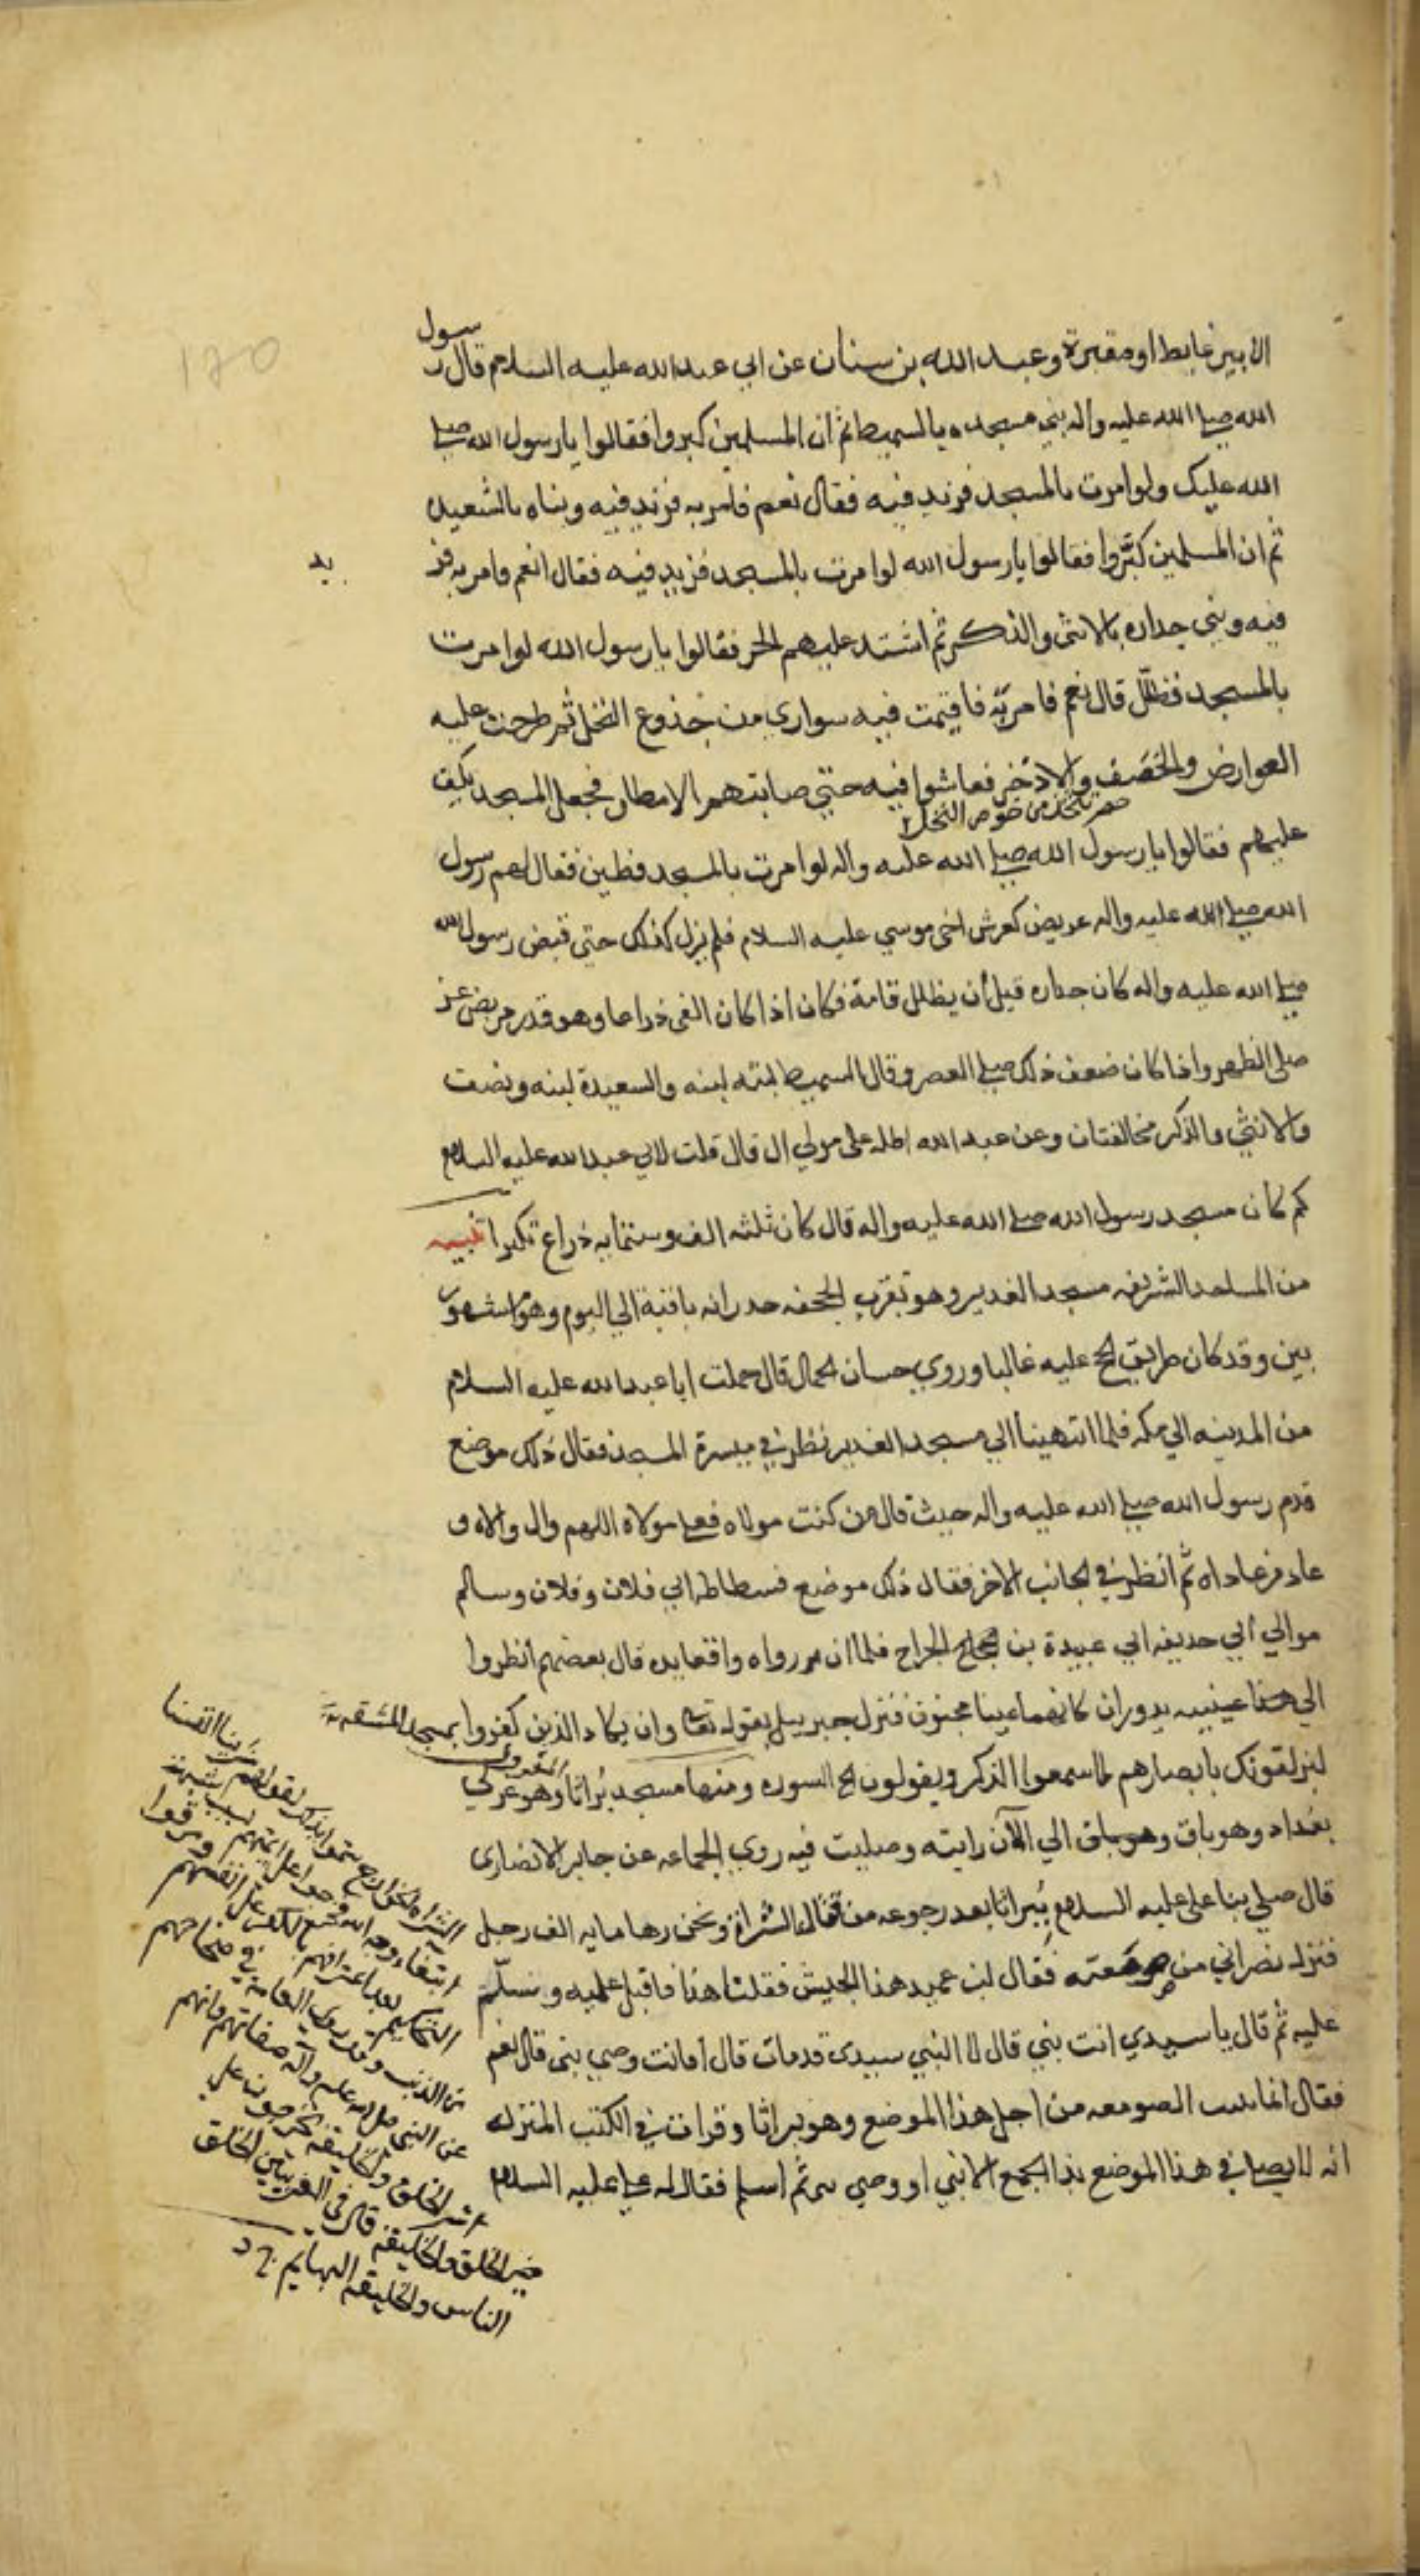 الا بير غايط او مقبرة وعبد الله بن سنان عن ابي عبد الله عليه السلام قال رسول
الله صلى الله عليه واله بنى مسجده بالسميط ثم ان المسلمين كبروا فقالوا يا رسول الله صلى
الله عليك ولو امرت بالمسجد فزيد فيه فقال نعم فامر به فزيد فيه وبناه بالسعيد
ثم ان المسلمين كثروا فقالوا يا رسول الله لو امرت بالمسجد فزيد فيه فقال انعم وامر به فز
يد
فيه وبنى جداره بالانثى والذكر ثم اشتد عليهم الحر فقالوا يا رسول الله لو امرت
بالمسجد فظلل قال نعم فامر به فاقيمت فيه سواري من جذوع النخل ثم طرحت عليه
العوارض والخصف والاذخر فعاشوا فيه حتى صابتهم الامطار فجعل المسجد يكف
حصر تتخذ من خوص النخل
عليهم فقالوا يا رسول الله صلى الله عليه واله لو امرت بالمسجد فطين فقال لهم رسول
الله صلى الله عليه واله عريض كعرش اخى موسي عليه السلام فلم يزل كذلك حتى قبض رسول الله
صلى الله عليه واله كان جداره قبل أن يظلل قامة فكان اذا كان الفى ذراعا وهو قدر مربض عنز
صلى الظهر واذا كان ضعف ذلك صلى العصر وقال السميط لبنه لبنه والسعيدة لبنه ونصف
والانثي والذكر مخالفتان وعن عبد الاعلى مولى ال قال قلت لابي عبد الله عليه السلام
كم كان مسجد رسول الله صلى الله عليه واله قال كان ثلثه الف وستمايه ذراع تكسيرا تنبيه
من المساجد الشريفه مسجد الغدير وهو بقرب الجحفه جدرانه باقية الي اليوم وهو مشهور
بين وقد كان طريق الحج عليه غالبا وروي حسان الجمال قال حملت ابا عبد الله عليه السلام
من المدينه الي مكه فلما انتهينا الي مسجد الغدير نظر في ميسرة المسجد فقال ذلك موضع
قدم رسول الله صلى الله عليه واله حيث قال من كنت مولاه فعلي مولاه اللهم وال والاه و
عاد من عاداه ثم انظر في الجانب الاخر فقال ذلك موضع فسطاط ابي فلان وفلان وسالم
موالي ابي حديفه ابي عبيدة بن الجراح فلما ان راوه رافعا يده قال بعضهم انظروا
الي عينيه يدوران كانهما عينا مجنون فنزل جبرييل بقوله تعالى وان يكاد الذين كفروا
ليزلقونك بابصارهم لما سمعوا الذكر ويقولون الخ السوره ومنها مسجد براثا وهو غربي
بغداد وهو باق وهو باق الي الآن رايته وصليت فيه روي الجماعه عن جابر الانصاري
قال صلي بنا علي عليه السلام ببراثا بعد رجوعه من قتال الشراة ونحن زها مايه الف رجل
فنزل نصراني من صومعته فقال اين عميد هذا الجيش فقلنا هذا فاقبل عليه وسلم
عليه ثم قال يا سيدي انت نبي قال لا النبي سيدي قد مات قال افانت وصي نبي قال نعم
فقال انما بنيت الصومعه من اجل هذا الموضع وهو براثا وقرات في الكتب المنزله
انه لا يصلي في هذا الموضع بذا الجمع الا نبي او وصي نبي ثم اسلم فقال له علي عليه السلام
الشراه الخوارج سموا بذلك لقولهم شرينا انفسنا
ابتغاء وجه الله
من الدين وقد روي العامه في صحاحهم
عن النبي صلى الله عليه وآله صفاتهم وانهم
شر الخلق والخليقة يخرجون علي
خير الخلق والخليقة قال في الغريبين الخلق
الناس والخليقة البهايم